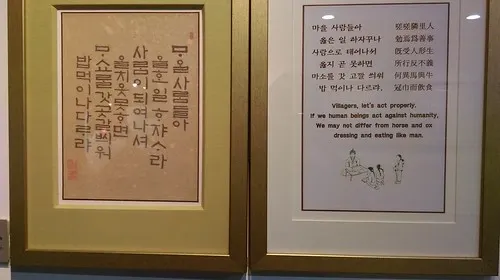 ᄆᆞᄋᆞᆯ사ᄅᆞᆷ들아
올ᄒᆞᆫ일ᄒᆞ쟈스라
사ᄅᆞᆷ이되여나셔
올치옷못ᄒᆞ면
ᄆᆞ쇼ᄅᆞᆯ갓곳갈씌워
밥먹이나다ᄅᆞ랴
마을 사람들아 嗟嗟隣里人
옳은 일 하자꾸나 勉焉爲善事
사람으로 태어나서 既受人形生
옳지 곧 못하면 所行反不義
마소를 갓 고깔 씌워 何異馬與牛
밥 먹이나 다르랴. 冠巾而飲食
Villagers, let's act properly.
If we human beings act against humanity,
We may not differ from horse and ox
dressing and eating like man.